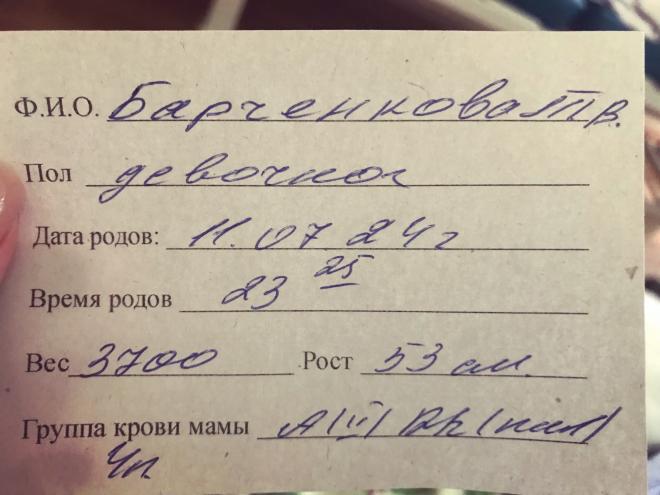 Ф.И.О. Барченкова Т В.
Пол девочка
Дата родов: 11.07.24г
Время родов 23 25
Вес 3700 Рост 53 см.
Группа крови мамы A(II) Rh(пол)